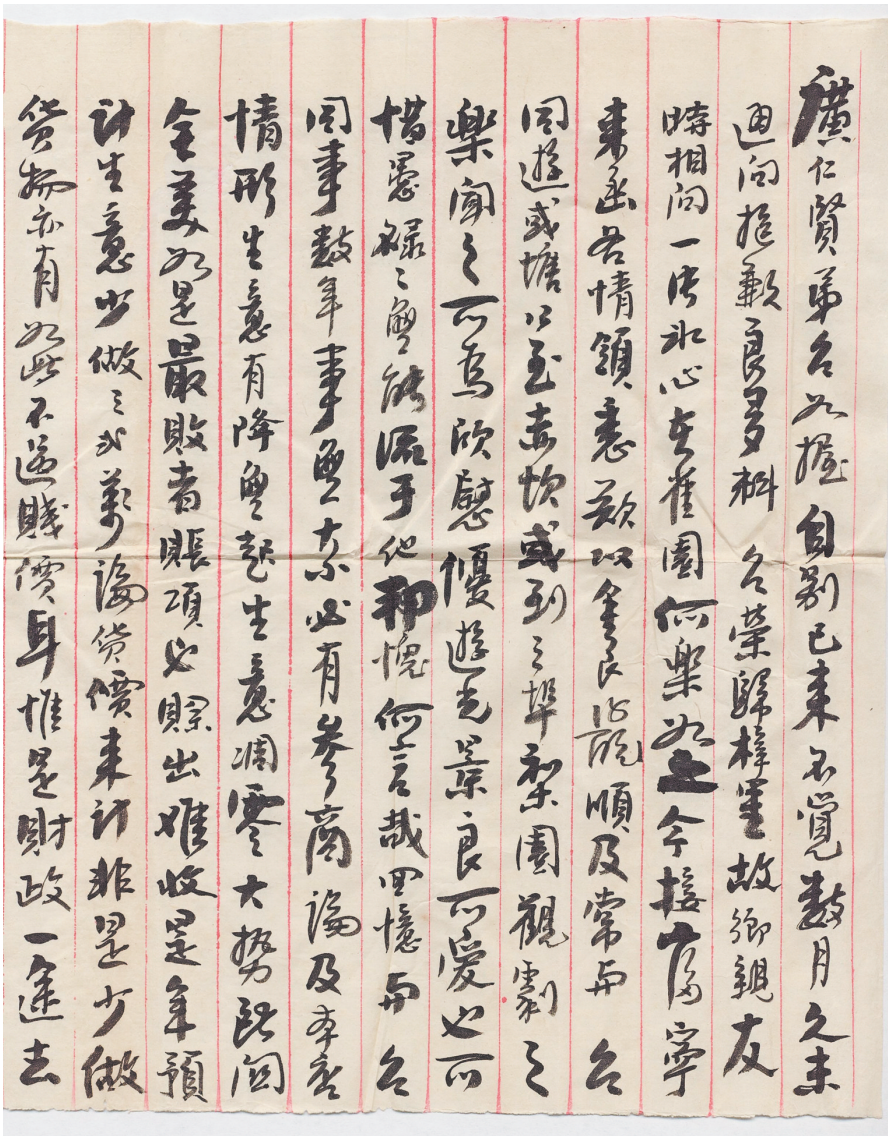 廣仁賢弟台如握自別已来不覺数月久未
通问抱歉良多 台荣歸梓里故鄉親友
時相问一片冰心在 園何樂如之今接 寧
来函各情領悉欵以 順及常与 台
同遊或塘口至赤坎或到之埠梨園觀劇之
樂闻之而為欣慰優遊光景良可爱也可
惜愚碌々無能流于他邦愧何言哉回憶与台
同事数年事無大小必有参商論及本店
情形生意有降無起生意凋零大势所関
全美如是最敗者賬項必賒出难收是年預
計生意少做々或萬論货價来計非是少做
货物亦有如此不过賤價耳惟是財政一途去